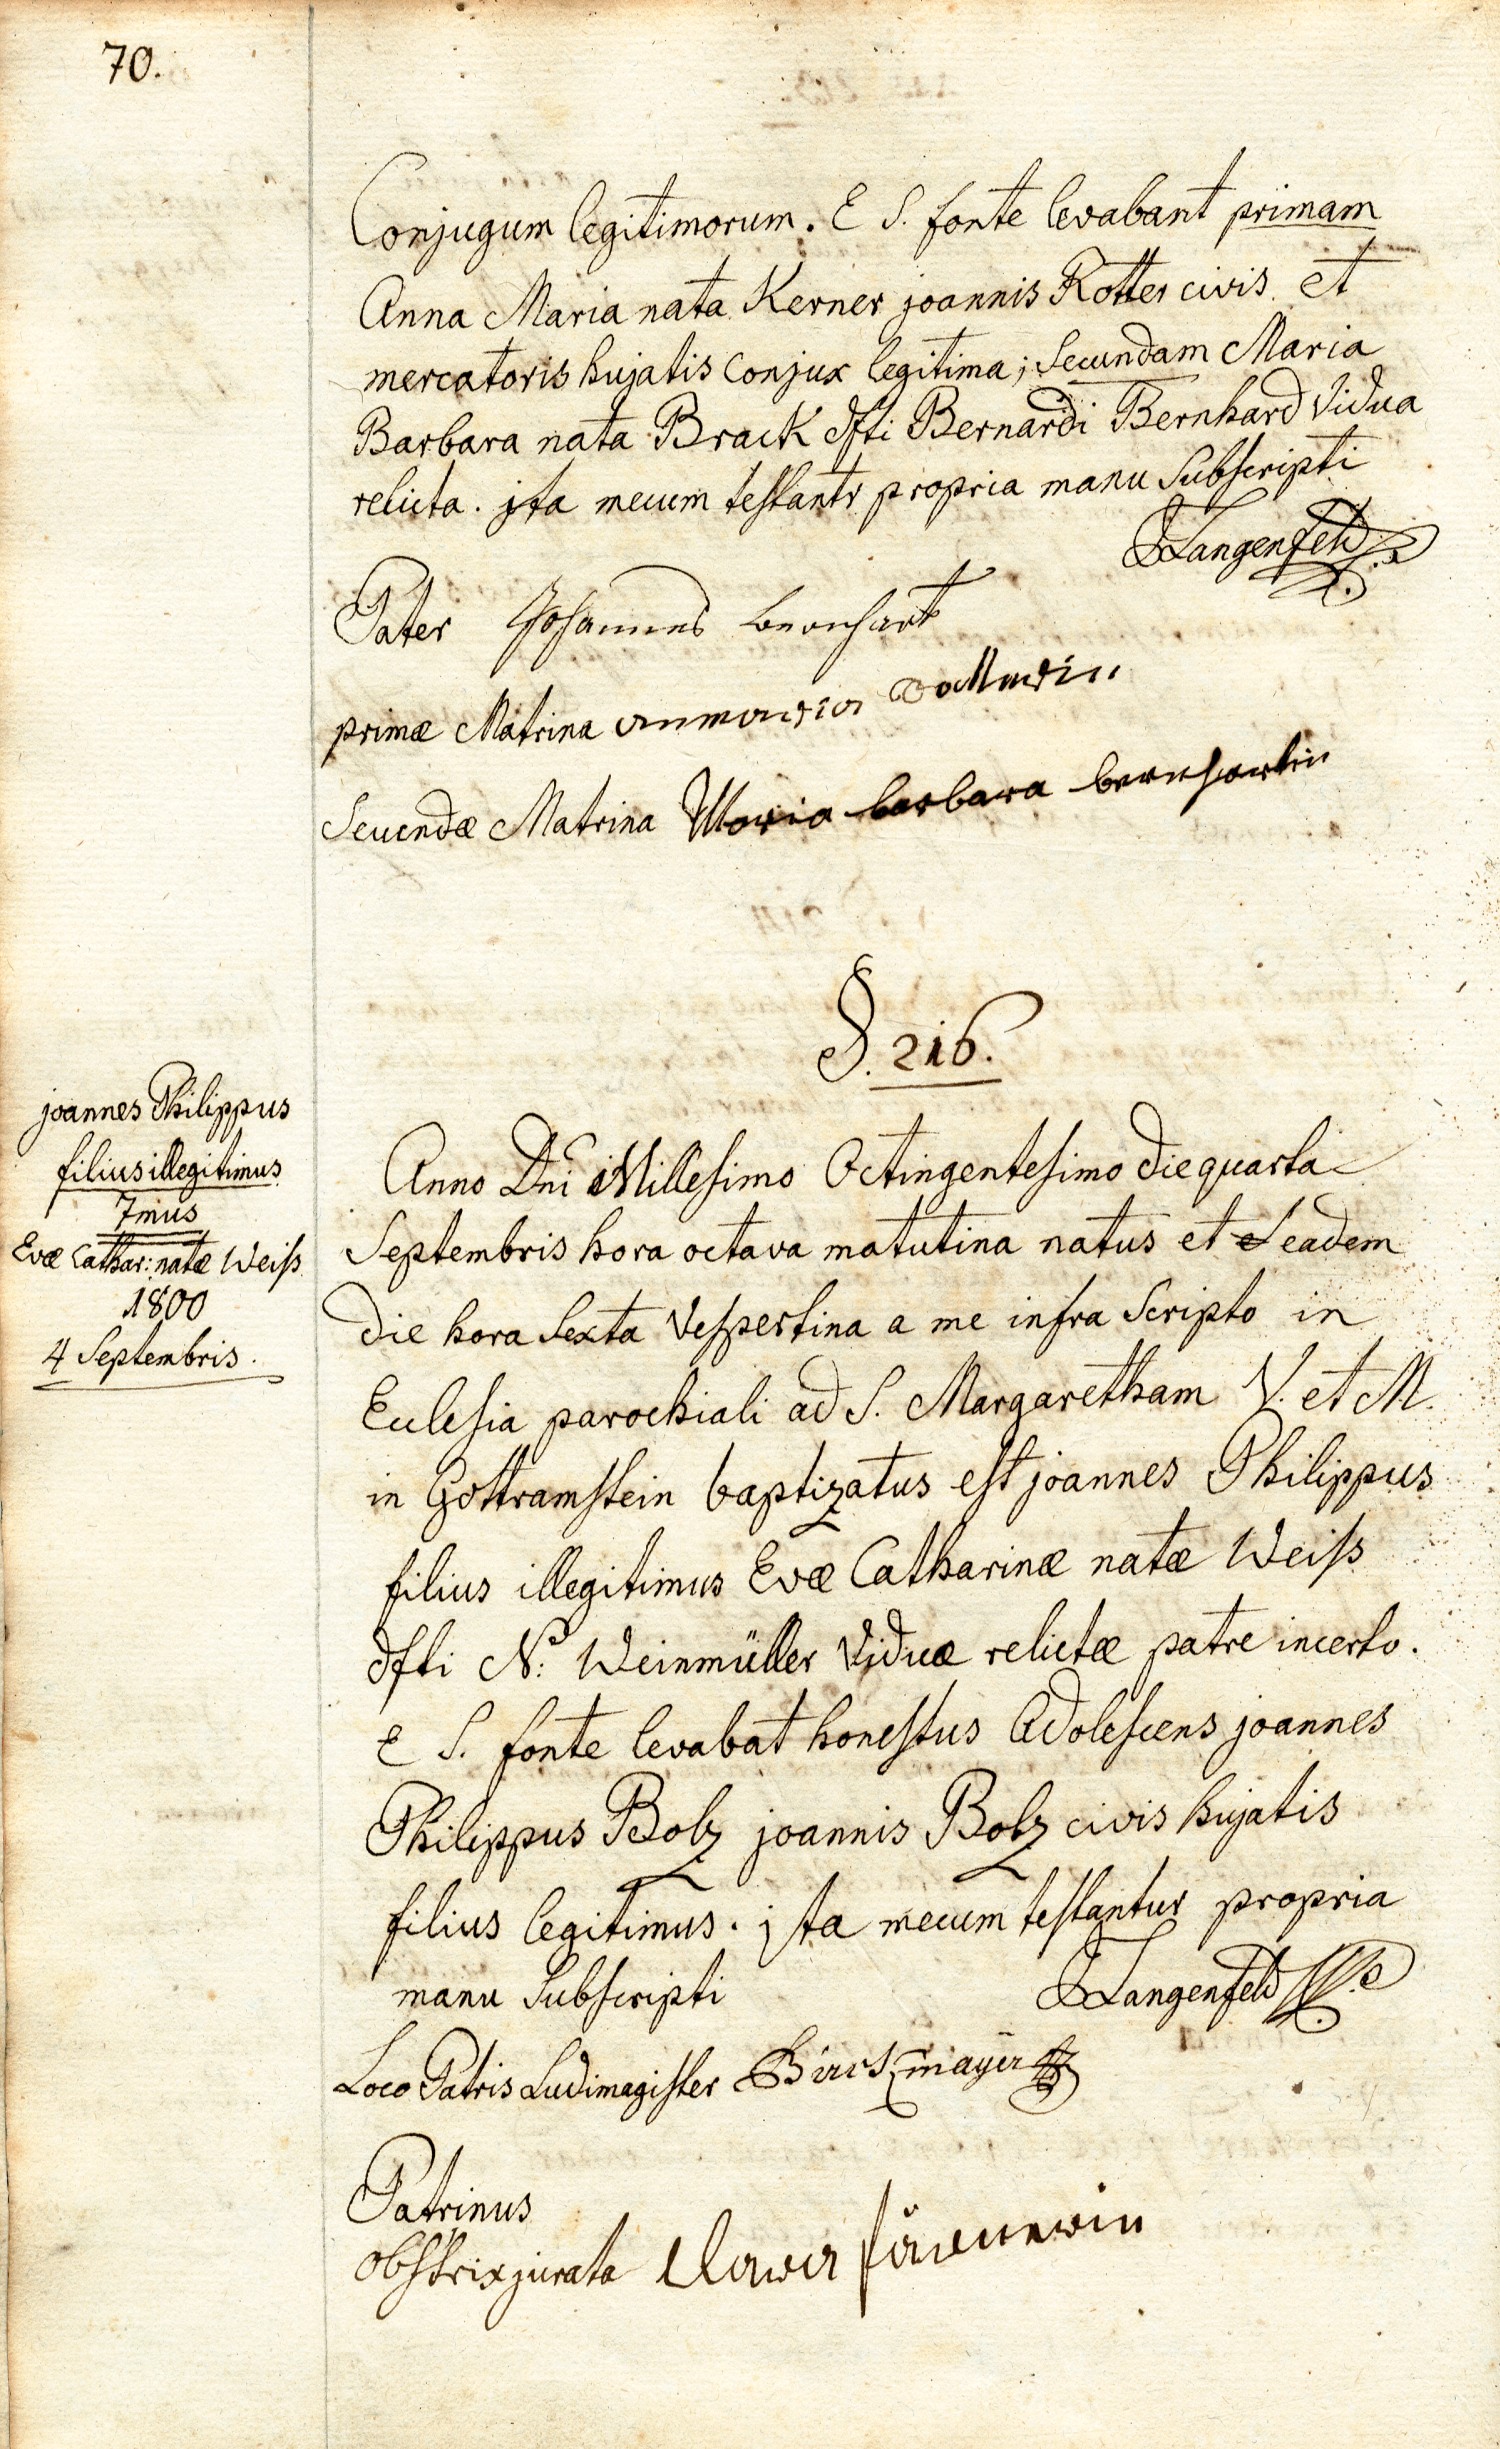 70.
Conjugum legitimorum. E S. fonte levabant primam
Anna Maria nata Kerner joannis Rotter civis et
mercatoris hujatis Conjux legitima; Secundam Maria
Barbara nata Brack dfti Bernardi Bernhard Vidua
relicta. jta mecum testantr propria manu Subscripti
Langenfeld
Pater Johannes bernhart
primæ Matrina anmaria
Secundæ Matrina Maria barbara bernhartin
§. 216.
joannes Philippus
filius illegitimus
7mus
Evæ Cathar: natæ Weiß
1800
4 Septembris.
Anno Dni Millesimo Octingentesimo die quarta
Septembris hora octava matutina natus et eadem
die hora Sexta Vespertina a me infra Scripto in
Ecclesia parochiali ad S. Margaretham V. et M.
in Gottramstein baptizatus est joannes Philippus
filius illegitimus Evæ Catharinæ natæ Weiß
dfti N: Weinmüller Viduæ relictæ patre incerto.
E S. fonte levabat honestus Adolescens joannes
Philippus Bolz joannis Bolz civis hujatis
filius legitimus. jta mecum testantur propria
manu Subscripti Langenfeld
Loco Patris Ludimagister
Patrinus
Obstrix jurata